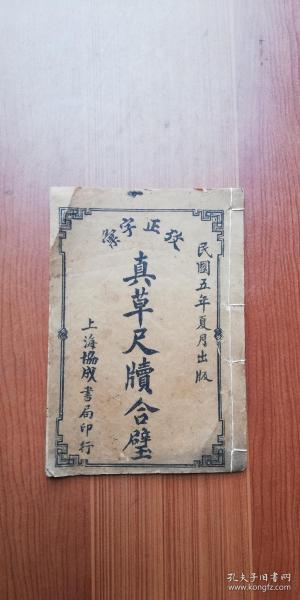 民國五年夏月出版
攷正字彙
真草尺牘合璧
上海協成書局印行
孔夫子旧书网